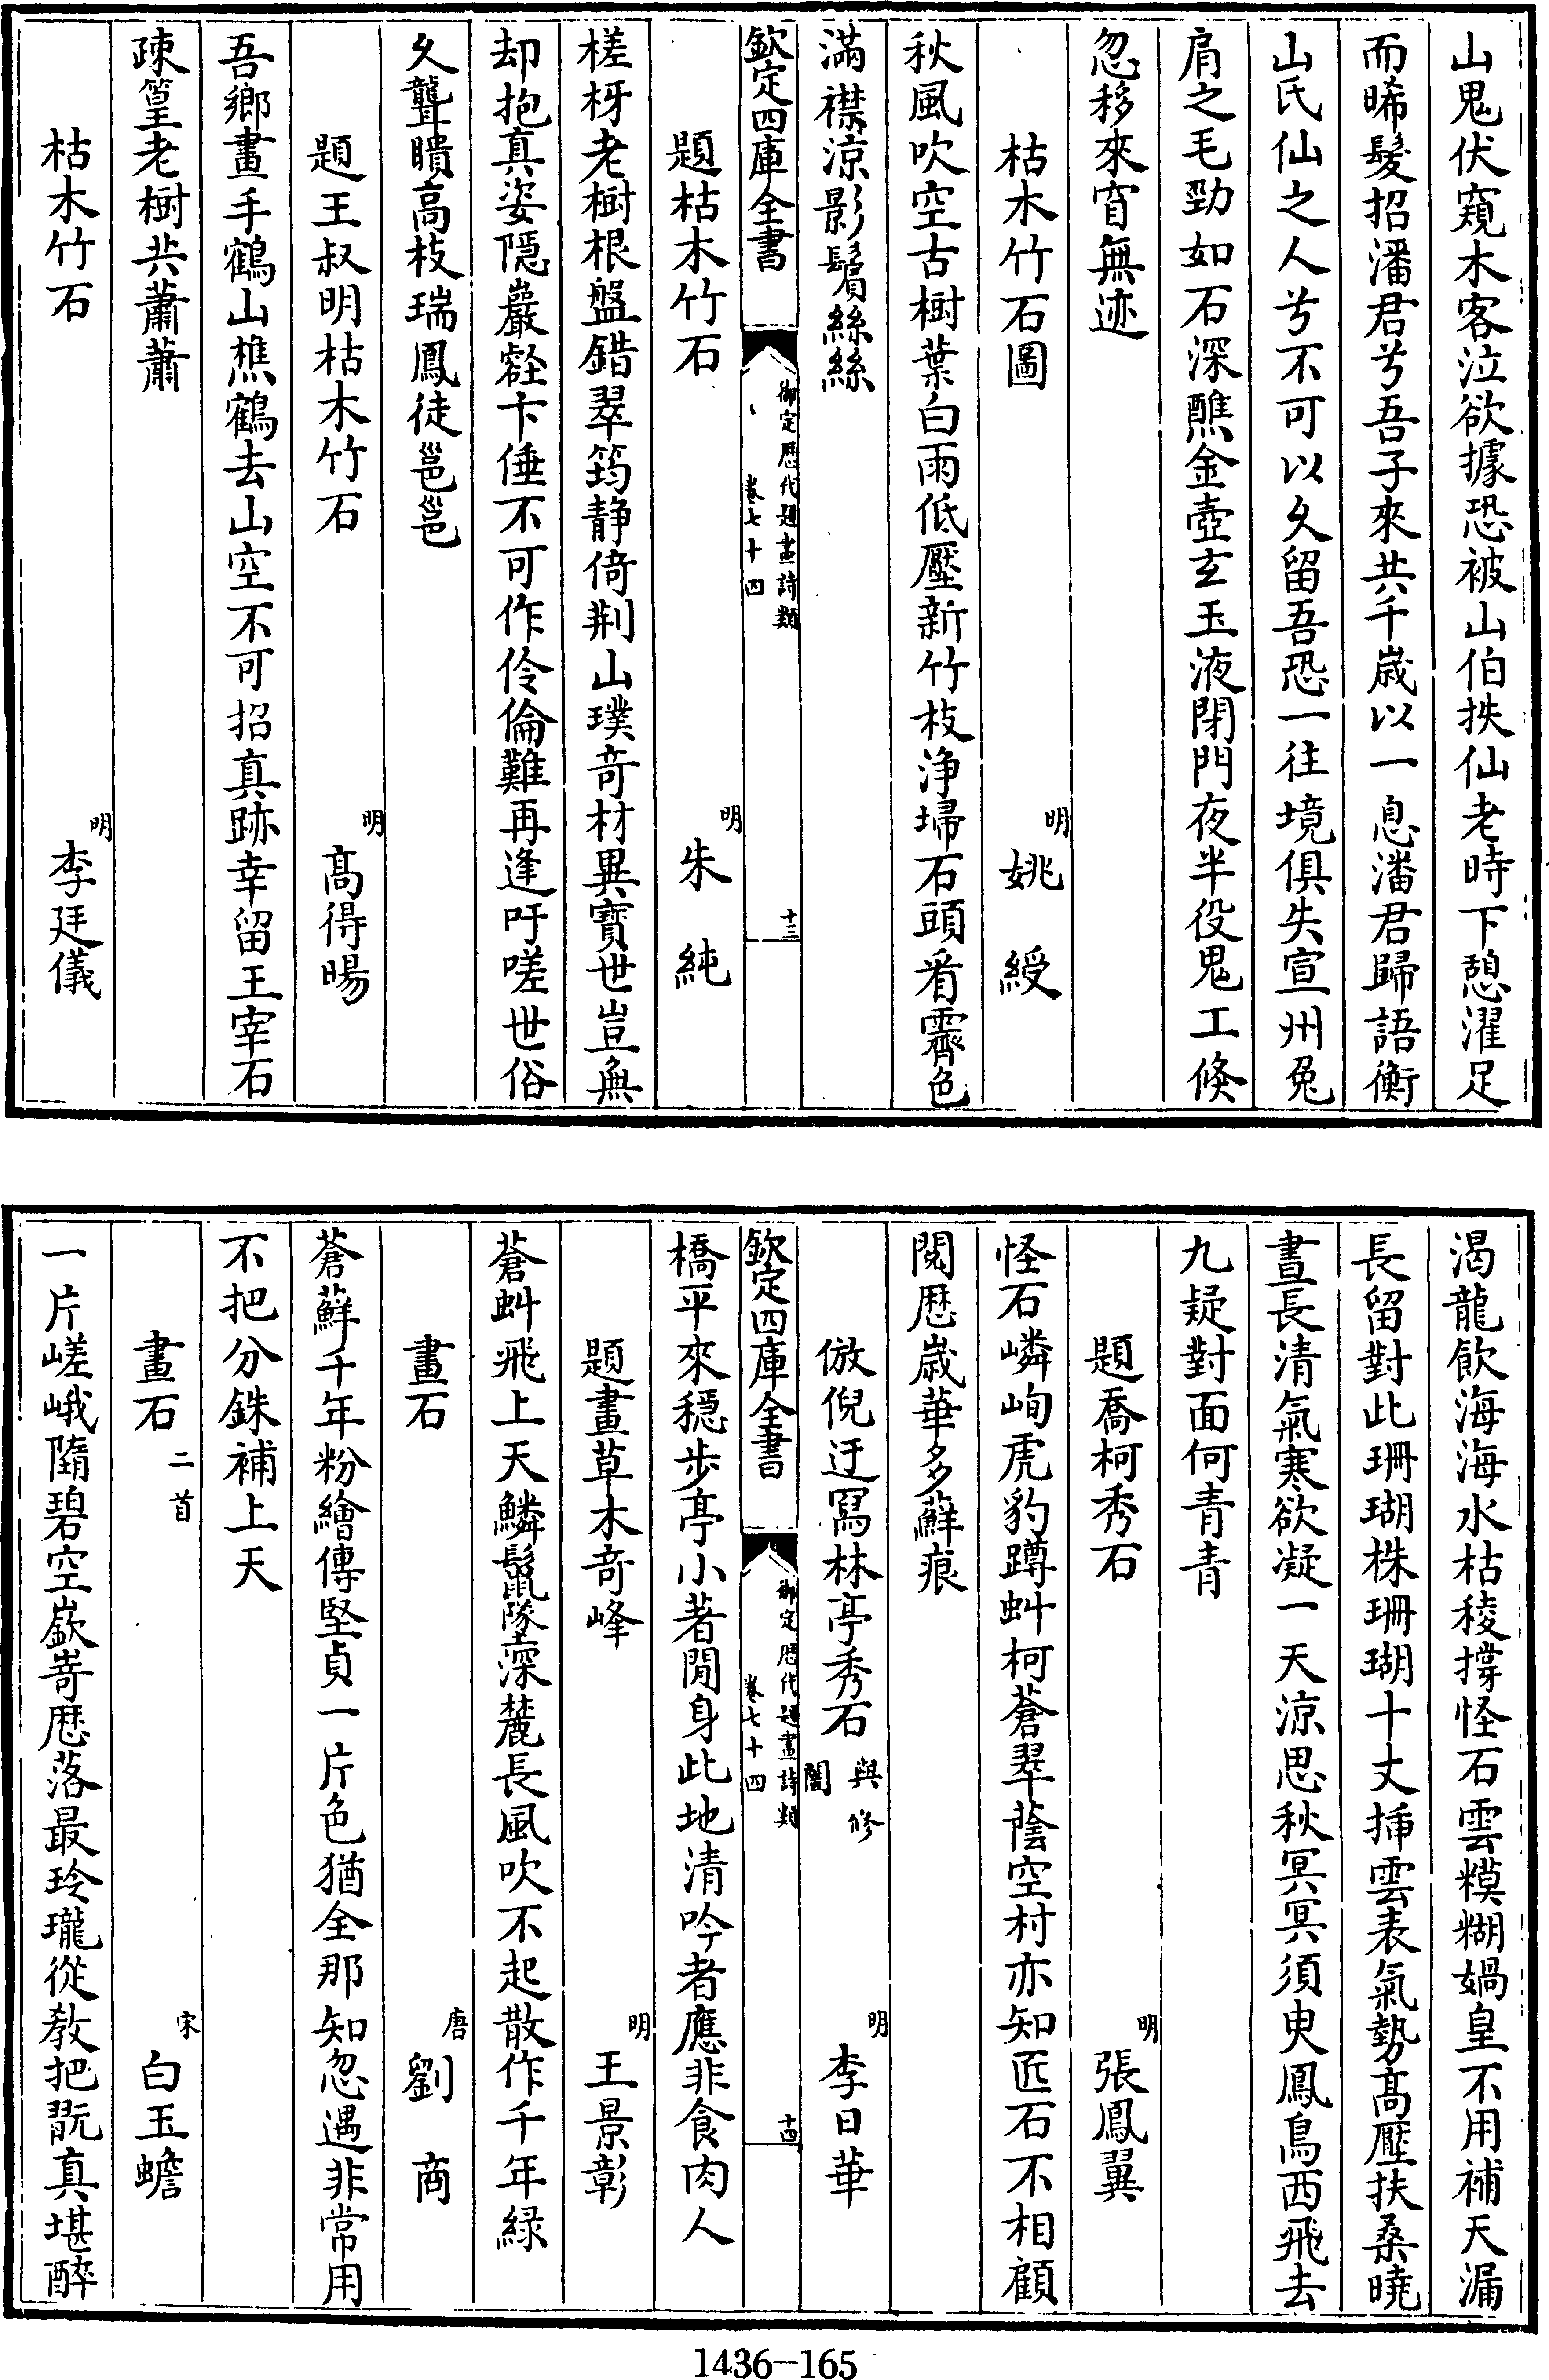 山鬼伏窺木客泣欲據恐被山伯抶仙老時下憩濯足
而晞髮招潘君兮吾子來共千歳以一息潘君歸語衡
山氏仙之人兮不可以久留吾恐一往境俱失宣州兔
肩之毛勁如石深醮金壺玄玉液閉門夜半役鬼工倐
忽移來窅無迹
枯木竹石圖 明 姚綬
秋風吹空古樹葉白雨低壓新竹枝浄埽石頭看霽色
滿襟涼影鬚絲絲
欽定四庫全書 御定歴代題畫詩類 卷七十四 十三
題枯木竹石 明 朱純
槎枒老樹根盤錯翠筠静倚荆山璞奇材異寳世豈無
却抱真姿隠巖壑卞倕不可作伶倫難再逢吁嗟世俗
久聾瞶高枝瑞鳳徒邕邕
題王叔明枯木竹石 明 髙得暘
吾鄉畫手鶴山樵鶴去山空不可招真跡幸留王宰石
疎篁老樹共蕭蕭
枯木竹石 明 李廷儀
渴龍飲海海水枯稜撐怪石雲糢糊媧皇不用補天漏
長留對此珊瑚株珊瑚十丈揷雲表氣勢髙壓扶桑曉
晝長清氣寒欲凝一天涼思秋冥冥須臾鳳鳥西飛去
九疑對面何青青
題喬柯秀石 明 張鳳翼
怪石嶙峋虎豹蹲虬柯蒼翠蔭空村亦知匠石不相顧
閲歴歳華多蘚痕
倣倪迂冩林亭秀石 與修闇 明 李日華
欽定四庫全書 御定歴代題畫詩類 卷七十四 十四
橋平來穏步亭小著閒身此地清吟者應非食肉人
題畫草木奇峰 明 王景彰
蒼虬飛上天鱗鬛墜深麓長風吹不起散作千年緑
畫石 唐 劉商
蒼蘚千年粉繪傳堅貞一片色猶全那知忽遇非常用
不把分銖補上天
畫石 二首 宋 白玉蟾
一片嵯峨隋碧空嶔崎歴落最玲瓏從教把翫真堪醉
1436-165